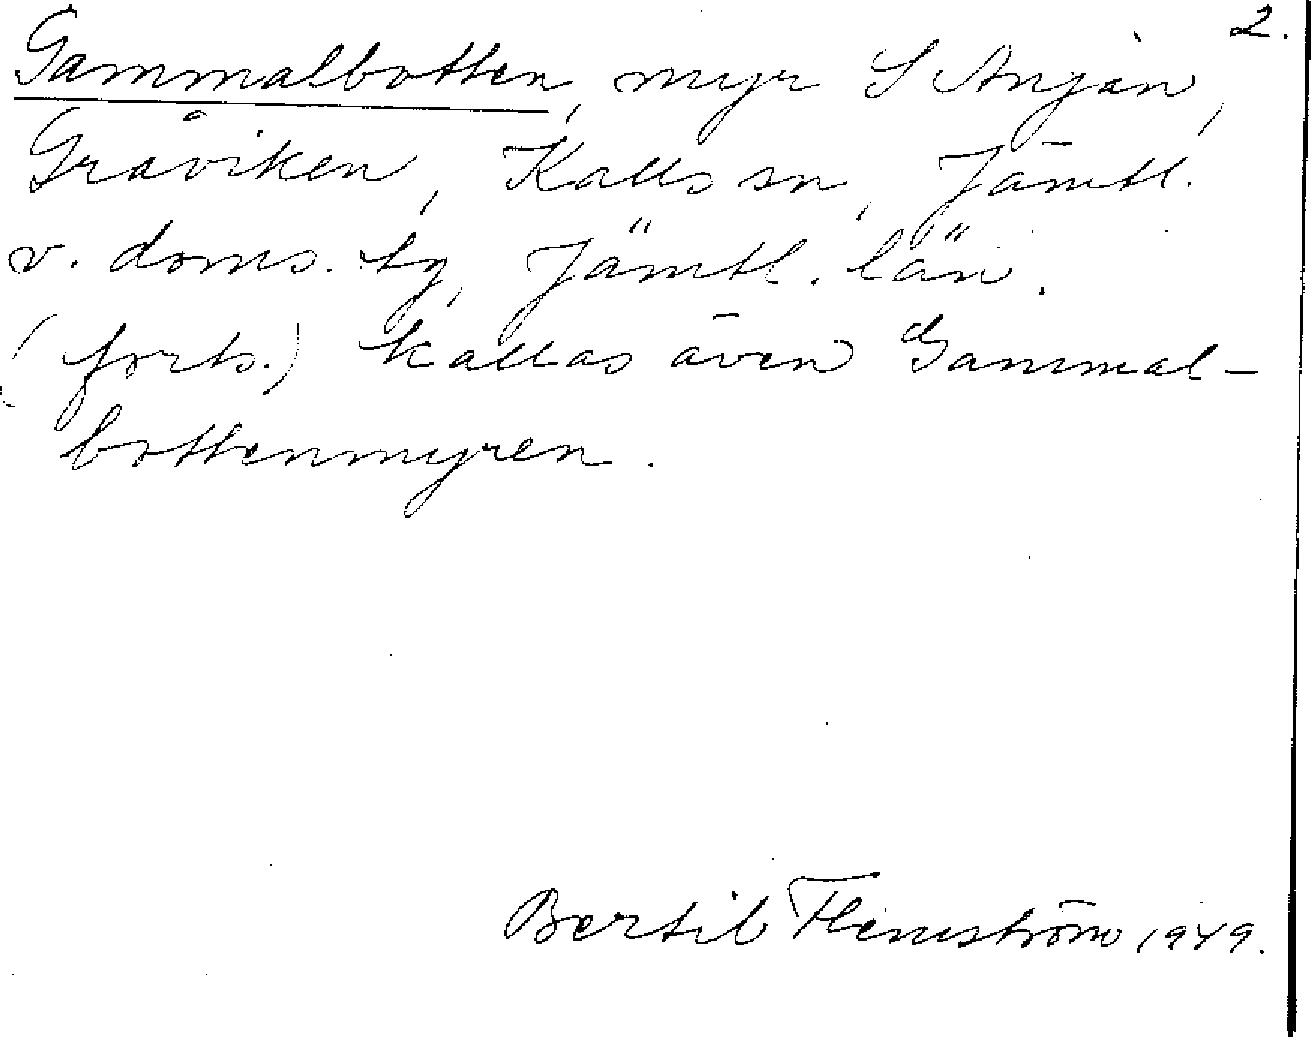 2.
Gammalbotten, myr S Anjan,
Gråviken, Kalls sn, Jämtl.
v. doms. tg, Jämtl. län.
(forts.) kallas även Gammal-
bottenmyren.
Bertil Flemström 1949.